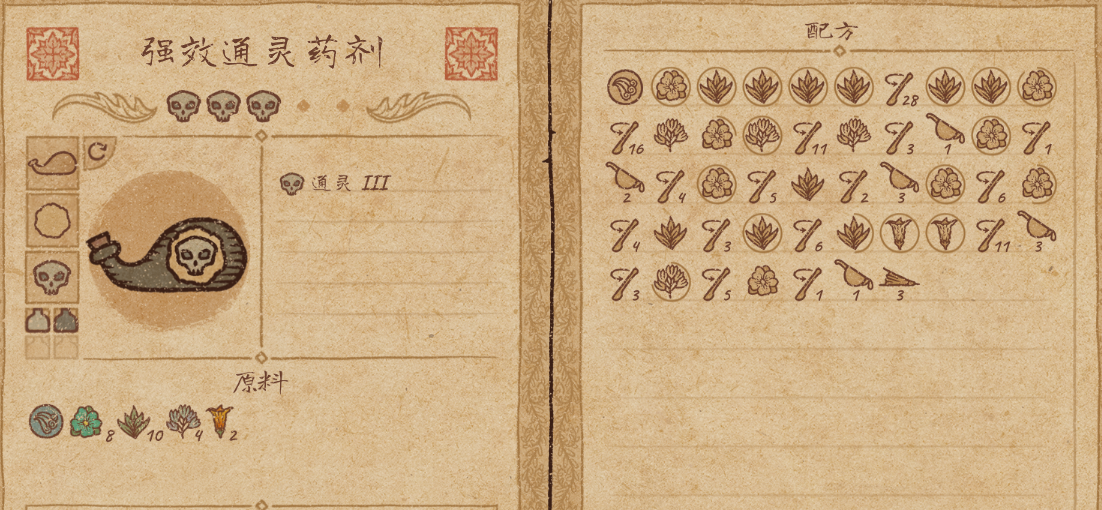 强效通灵药剂
通灵 III
原料
8 10 4 2
配方
28
16 11 3 1 1
2 4 5 2 3 6
4 3 6 11 3
3 5 1 1 3